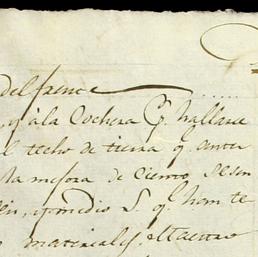 del frente
y à la Cochera q. hallare
el techo de tierra q. antes
la mejora de ciento, sesen
y medio S. q. han te
materiales, Maestro